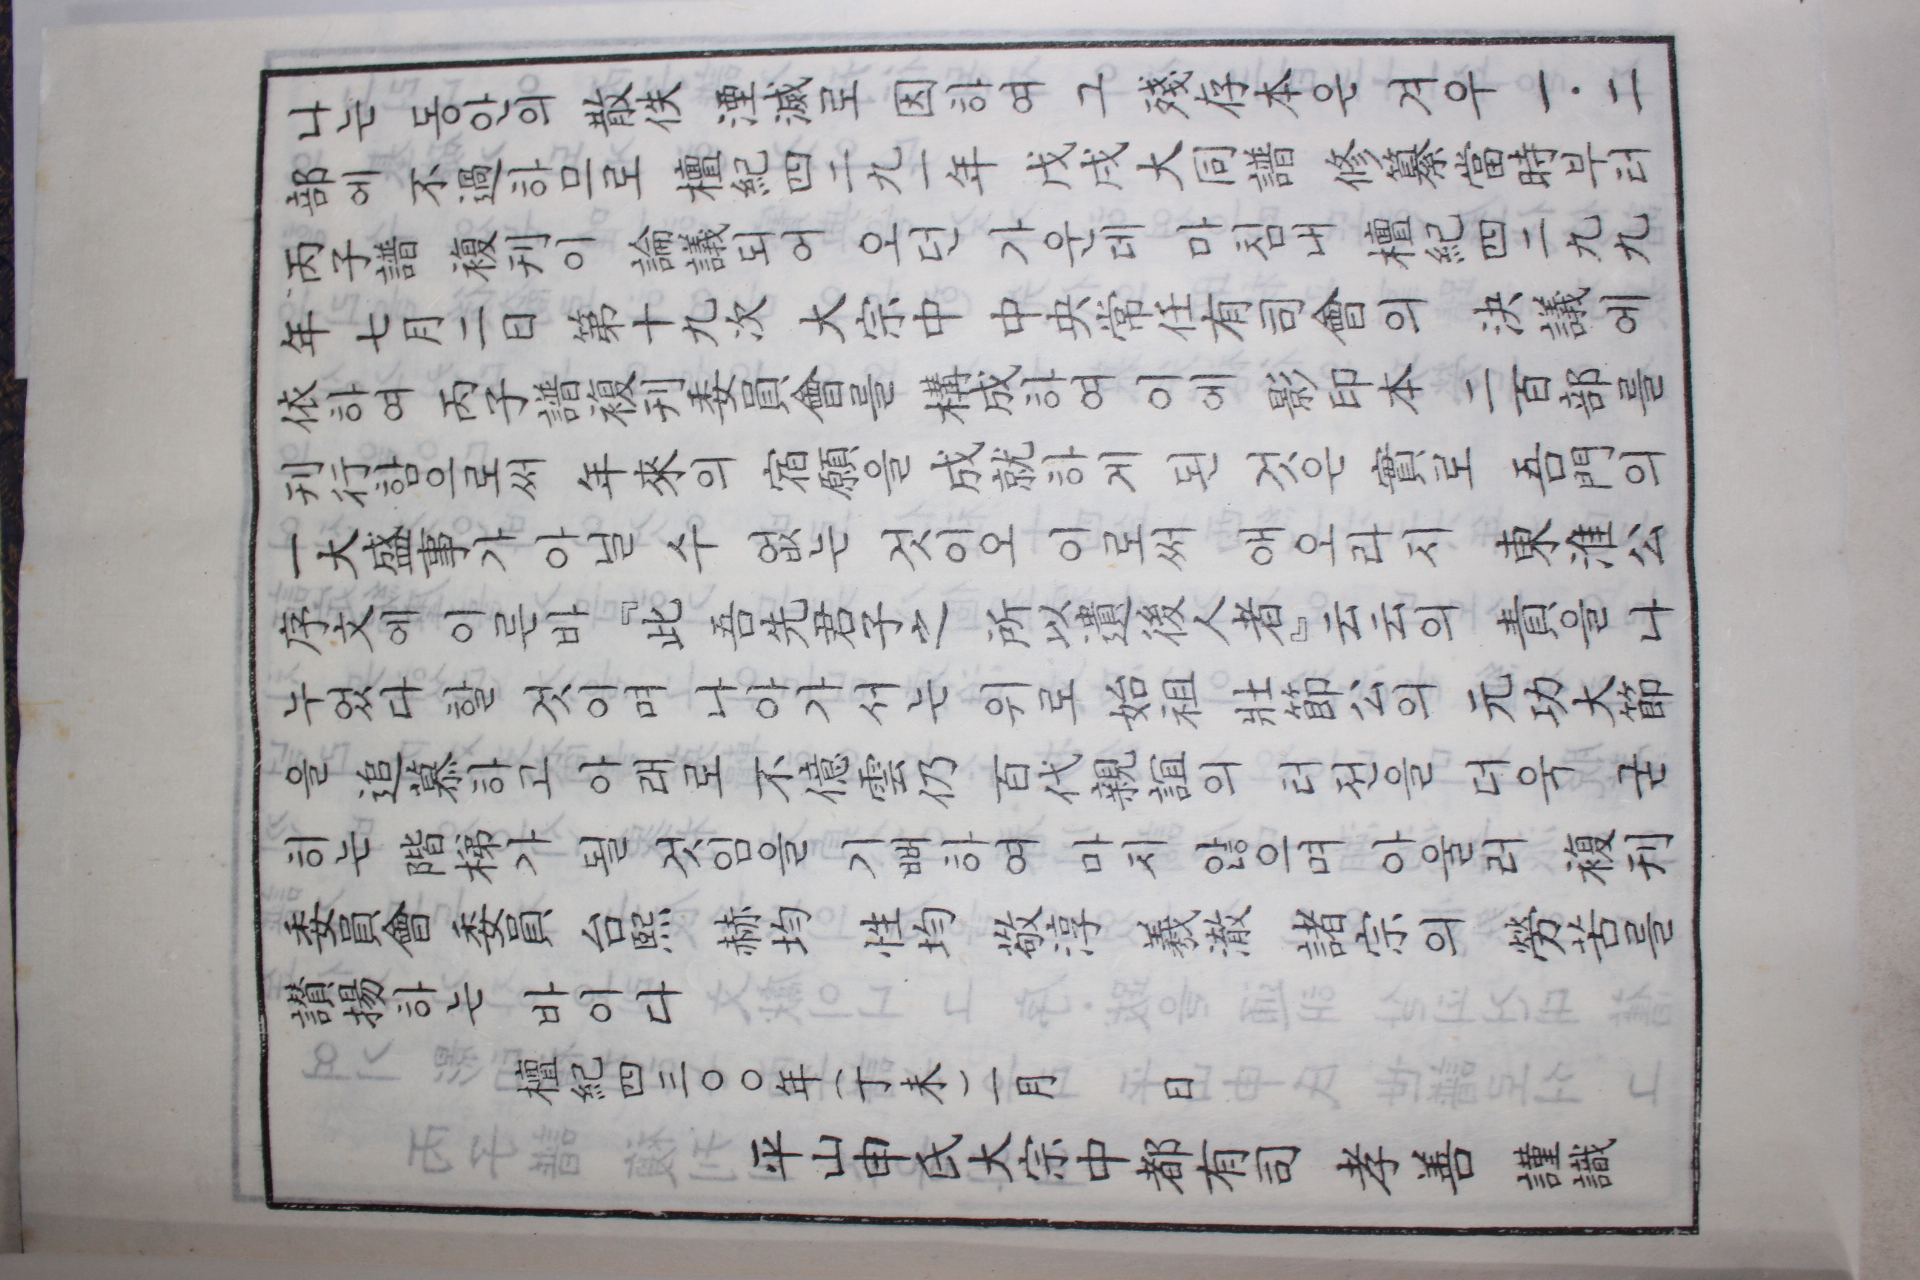 나는 동안의 散佚 湮滅로 因하여 그 殘存本은 겨우 一·二
部에 不過하므로 檀紀四二九一年 戊戌大同譜 修纂當時부터
丙子譜 複刊이 論議되어 오던 가운데 마침내 檀紀四二九九
年 七月二日 第十九次 大宗中 中央常任有司會의 決議에
依하여 丙子譜複刊委員會를 構成하여 이에 影印本 二百部를
刊行함으로써 年來의 宿願을 成就하게 된 것은 實로 吾門의
一大盛事가 아닐 수 없는 것이오 이로써 애오라지 東淮公
序文에 이른바『此 吾先君子之 所以遺後人者』云云의 責을 나
누었다 할 것이며 나아가서는 위로 始祖 壯節公의 元功大節
을 追慕하고 아래로 不億雲仍 百代親誼의 터전을 더욱 굳
히는 階梯가 될 것임을 기뻐하여 마지 않으며 아울러 複刊
委員會 委員 台熙 赫均 性均 敬淳 羲澈 諸宗의 勞苦를
讃揚하는 바이다
檀紀四三〇〇年(丁未)一月 日
平山申氏大宗中都有司 孝善 謹識